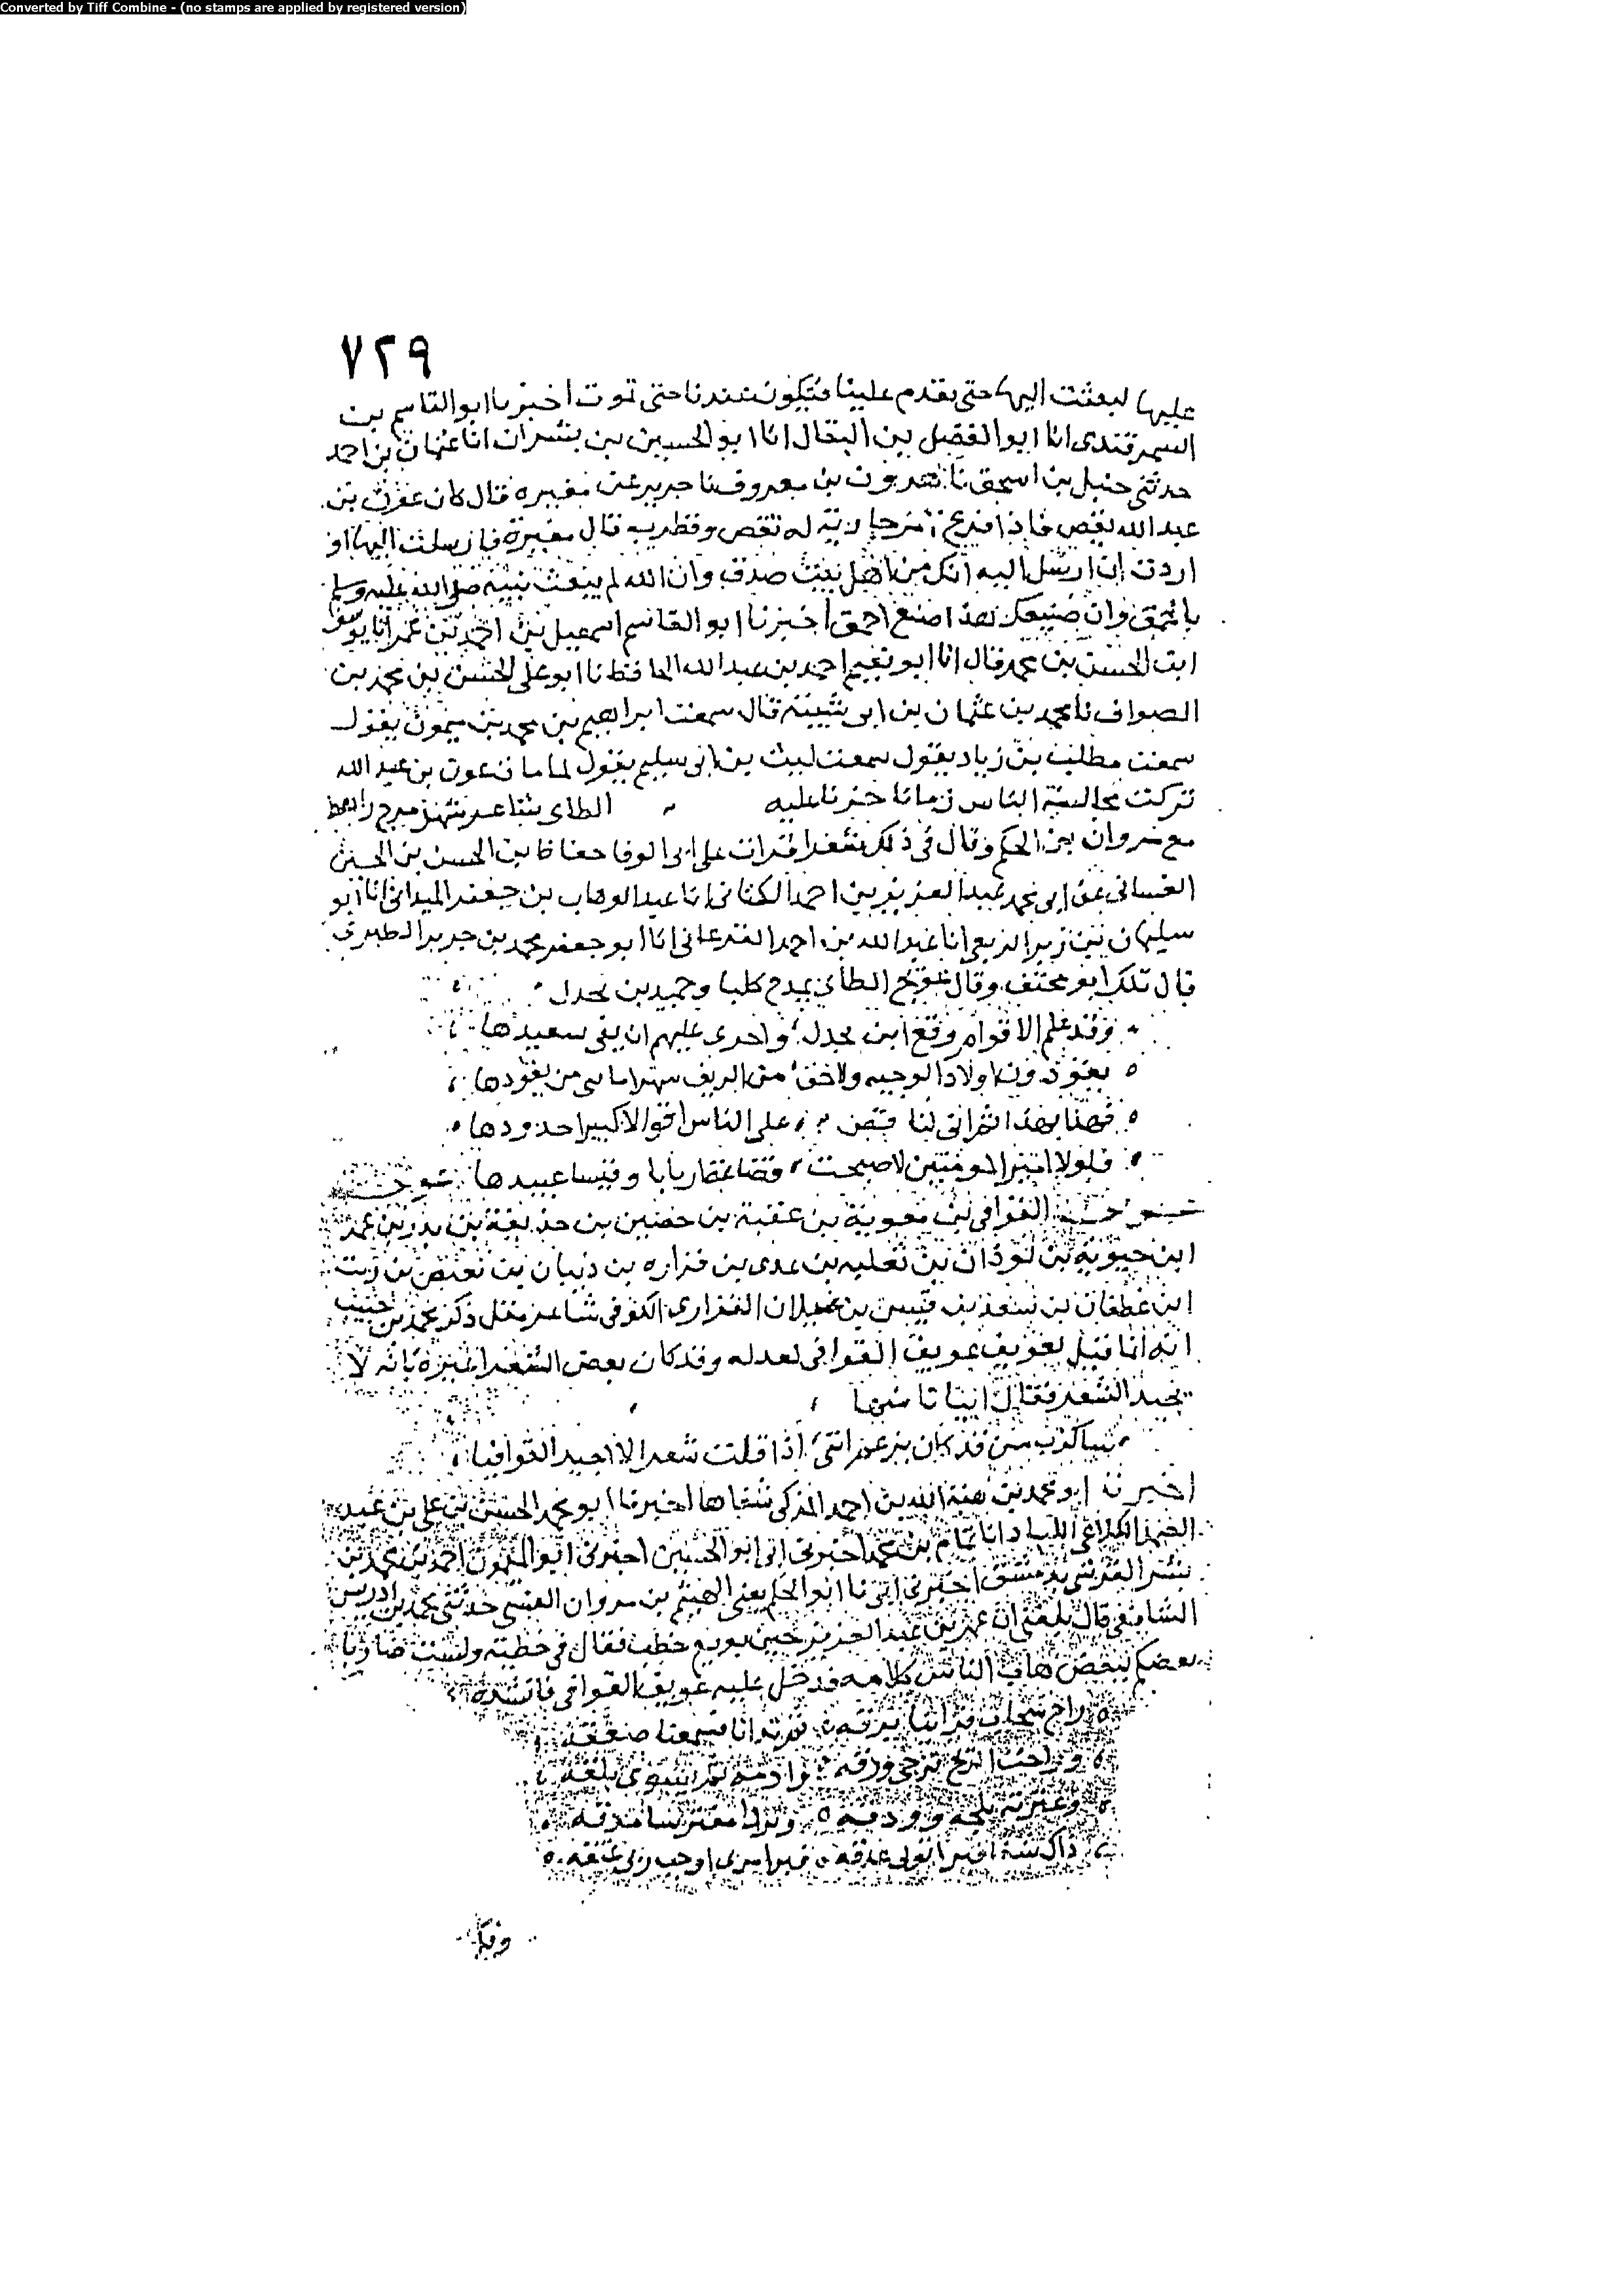 Converted by Tiff Combine - (no stamps are applied by registered version)
٧٢٩
عليها لبعثت اليها حتى يقدم علينا فيكون عندنا حتى تموت اخبرنا ابو القاسم بن
السمرقندى انا ابو الفضل بن البقال انا ابو الحسين بن بشران انا عثمان بن احمد
حدثنى حنبل بن اسحق نا هرون بن معروف نا جرير عن مغيرة قال كان عون بن
عبد الله يقص فاذا فرغ امر جارية له تقص وتطرب قال مغيرة فارسلت اليه او
اردت ان ارسل اليه انك من اهل بيت صدق وان الله لم يبعث نبيه صلى الله عليه وسلم
بالحمق وان صنيعك هذا صنع احمق اخبرنا ابو القاسم اسمعيل بن احمد بن عمر انا يوسف
ابن الحسن بن محمد قال انا ابو نعيم احمد بن عبد الله الحافظ نا ابو على الحسن بن محمد بن
الصواف نا محمد بن عثمان بن ابى شيبة قال سمعت ابراهيم بن محمد بن ميمون يقول
سمعت مطلب بن زياد يقول سمعت ليث بن ابى سليم يقول لما مات عون بن عبد الله
تركت مجالسة الناس زمانا حزنا عليه الطاى شاعر شهد مرج راهط
مع مروان بن الحكم وقال فى ذلك شعرا قرات على ابى الوفا حفاظ بن الحسن بن الحسين
الغسانى عن ابى محمد عبد العزيز بن احمد الكتانى انا عبد الوهاب بن جعفر الميدانى انا ابو
سليمان بن زبر الربعى انا عبد الله بن احمد الفرغانى انا ابو جعفر محمد بن جرير الطبرى
قال قال ابو مخنف وقال عويج الطائى يمدح كلبا وحميد بن بحدل
وقد علم الاقوام وقع ابن بحدل واخرى عليهم ان بقى سعيدها
يقودون اولاد الوجيه ولاحق من الريف شهرا ما ينى من يقودها
فهذا لهذا ثم انى لنا على الناس اقوالا كبيرا حدودها
فلولا امير المومنين لاصبحت قضاعة اربابا وقيسا عبيدها
القوافى بن معوية بن عقبة بن حصين بن حذيفة بن بدر بن عمرو
ابن جوية بن لوذان بن ثعلبه بن عدى بن فزاره بن ذبيان بن بغيض بن ريث
ابن غطفان بن سعد بن قيس بن عيلان الفزارى الكوفى شاعر مقل ذكر محمد بن حبيب
انه انما قيل لعويف عويف القوافى لعدله وقد كان بعض الشعرا عيره بانه لا
يجيد الشعر فقال ابياتا منها
ساكذب من قد كان يزعم اننى اذا قلت شعرا لا اجيد القوافيا
اخبرنا ابو محمد بن هبة الله بن احمد المزكى شفاها اخبرنا ابو محمد الحسن بن على بن عبد
الصمد الكلاعى اللباد انا تمام بن محمد اخبرنى ابى ابو الحسين اخبرنى ابو الميمون احمد بن محمد بن
بشر القرشى بدمشق اخبرنى ابى نا ابو الحكم يعنى الهيثم بن مروان العنسى حدثنى محمد بن ادريس
الشافعى قال بلغنى ان عمر بن عبد العزيز حين بويع خطب فقال فى خطبته ولست ضاربا
بعضكم لبعض هاب الناس كلامه فدخل عليه عويف القوافى فانشده
راح سحاب فراينا برقه ثم تدانا فسمعنا صعقه
وراحت الريح تزجى ورقه
ذاك سقا قبرا فروى ودقه قبر امرى اوجب ربى حقه
وقبر